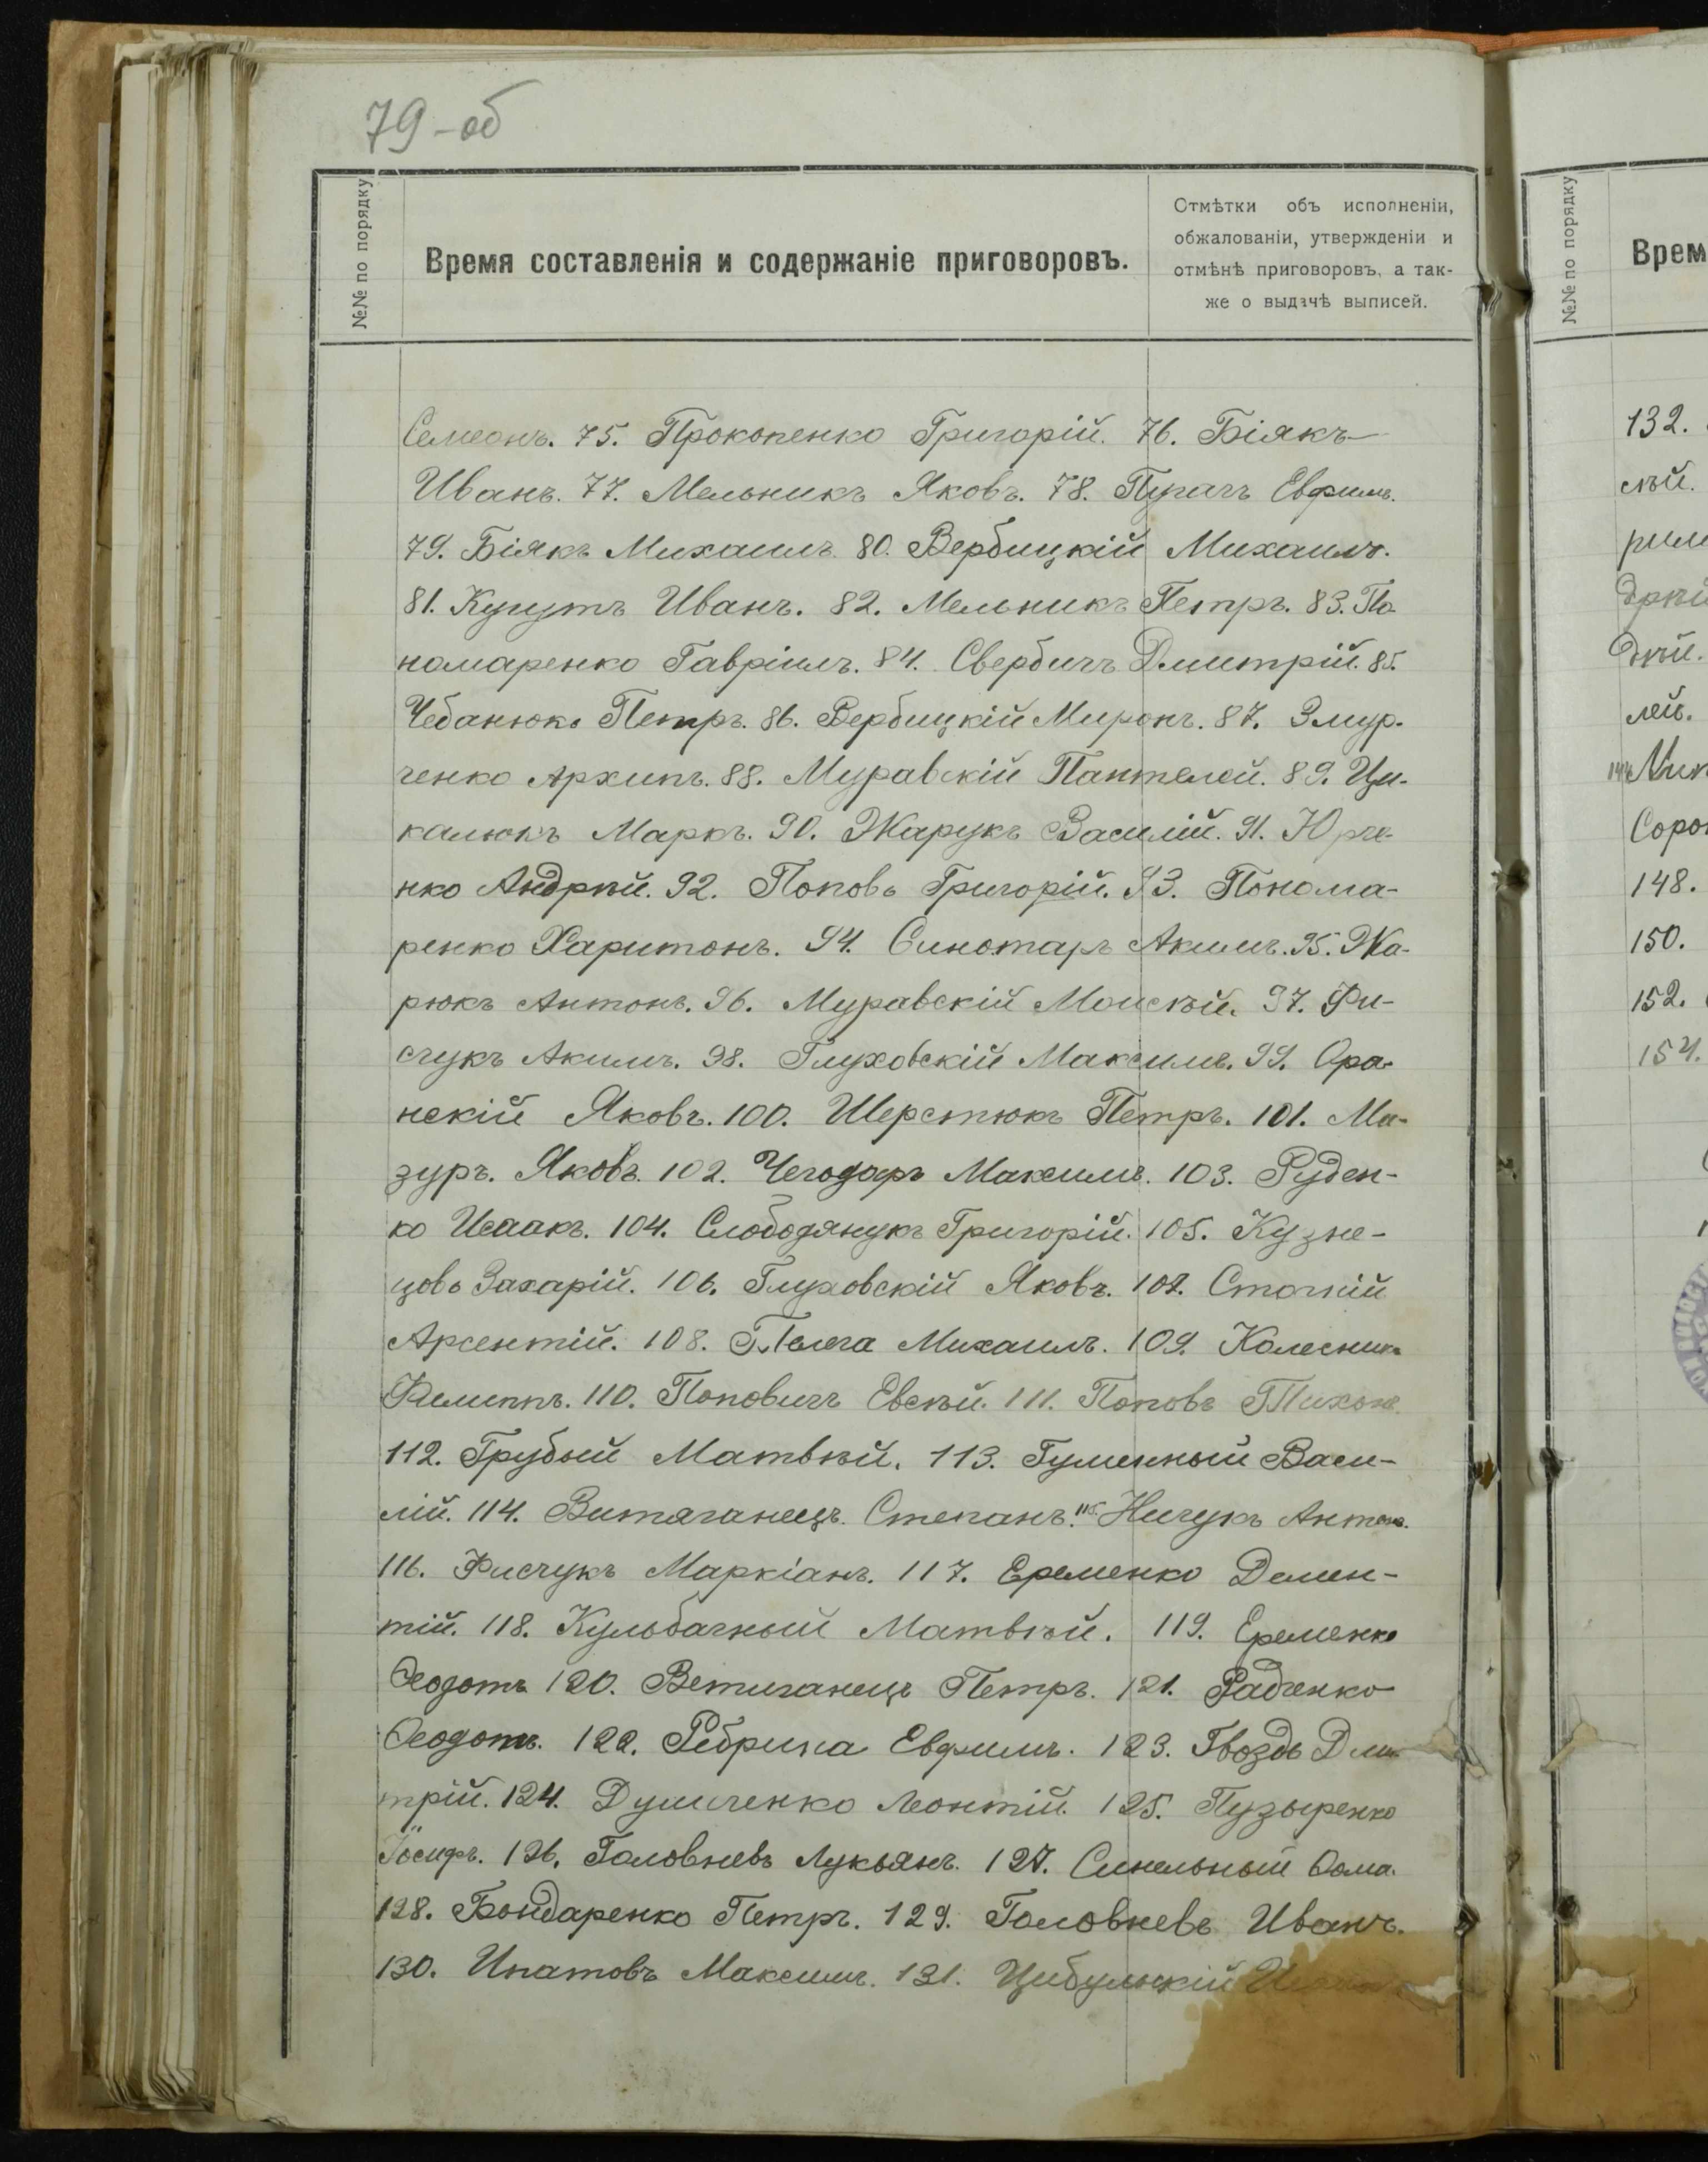 79-об
№№ по порядку
Время составленія и содержаніе приговоровъ.
Отмѣтки объ исполненіи,
обжалованіи, утвержденіи и
отмѣнѣ приговоровъ, а так-
же о выдачѣ выписей.
Семеонъ. 75. Прокопенко Григорій. 76. Біякъ
Иванъ. 77. Мельникъ Яковъ. 78. Пугачъ Евфимъ.
79. Біякъ Михаилъ 80. Вербицкій Михаилъ.
81. Иванъ. 82. Мельникъ Петръ. 83. По
номаренко Гавріилъ. 84. Свербичъ Дмитрій. 85.
Чебанюкъ Петръ. 86. Вербицкій Миронъ. 87. Змур-
ченко Архипъ. 88. Муравскій Пантелей. 89. Ци-
калюкъ Маркъ. 90. Жарукъ Василій. 91. Юрче-
нко Андрѣй. 92. Поповъ Григорій. 93. Понома-
ренко Харитонъ. 94. Синотаръ Акимъ. 95. Жа-
рюкъ Антонъ. 96. Муравскій Моисѣй. 97. Фи-
счукъ Акимъ. 98. Глуховскій Максимъ. 99. Ора-
нскій Яковъ. 100. Шерстюкъ Петръ. 101. Ма-
зуръ. Яковъ. 102. Чегодаръ Максимъ. 103. Руден-
ко Исаакъ. 104. Слободянукъ Григорій. 105. Кузне-
цовъ Захарій. 106. Глуховскій Яковъ. 107.
Арсентій. 108. Михаилъ. 109. Колесникъ
Филиппъ. 110. Поповичъ Евсѣй. 111. Поповъ Тихонъ.
112. Грубый Матвѣй. 113. Гуменный Васи-
лій. 114. Витяганецъ Степанъ. 115. Ничукъ Антонъ.
116. Фисчукъ Маркіанъ. 117. Еременко Демен-
тій. 118. Кульбачный Матвѣй. 119. Еременко
Ѳеодотъ 120. Ветиганецъ Петръ. 121. Радченко
Ѳеодотъ. 122. Ребрина Евфимъ. 123. Гвоздь Дми-
трій. 124. Думиченко Леонтій. 125. Пузыренко
Іосифъ. 126. Головневъ Лукьянъ. 127. Синельный Ѳома.
128. Бондаренко Петръ. 129. Головневъ Иванъ.
130. Ипатовъ Максимъ. 131. Цибульскій
№№ по порядку
Врем
132.
сѣй.
дѣй.
лей.
Соро
148.
150.
152.
154.